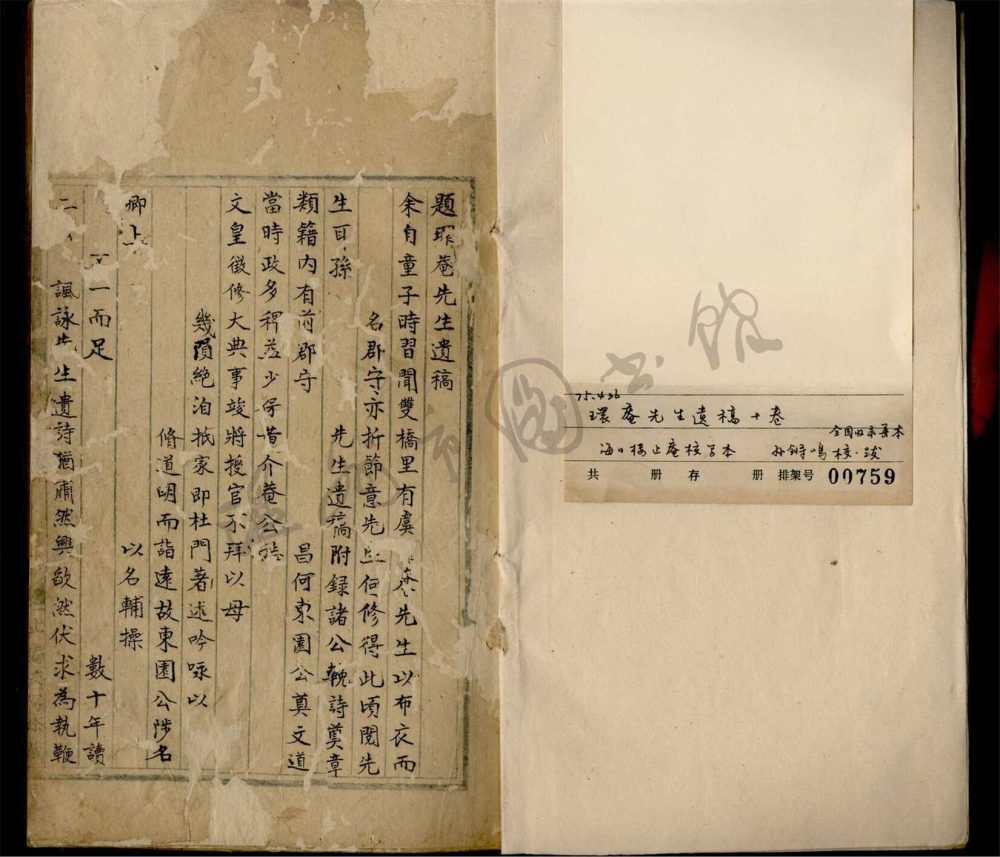 題環菴先生遺稿
余自童子時習聞雙橋里有虞 先生以布衣而
名郡守亦折節意先 何修得此頃閱先
生耳孫 先生遺稿附録諸公輓詩奠章
類籍内有前郡守 昌何東園公奠文道
當時政多稗益少保黄介菴公誌
文皇徵修大典事竣將授官不拜以母
幾隕絶洎抵家即杜門著述吟咏以
脩道明而詣遠故東園公陟名
卿上 以名輔操
一而足 數十年讀
諷詠先生遺詩猶肅然興歛然伏求為執鞭
75.4.26
環庵先生遺稿十卷
海日樓 校 本 鳴校 跋
共 册 存 册 排架号 00759
书馆